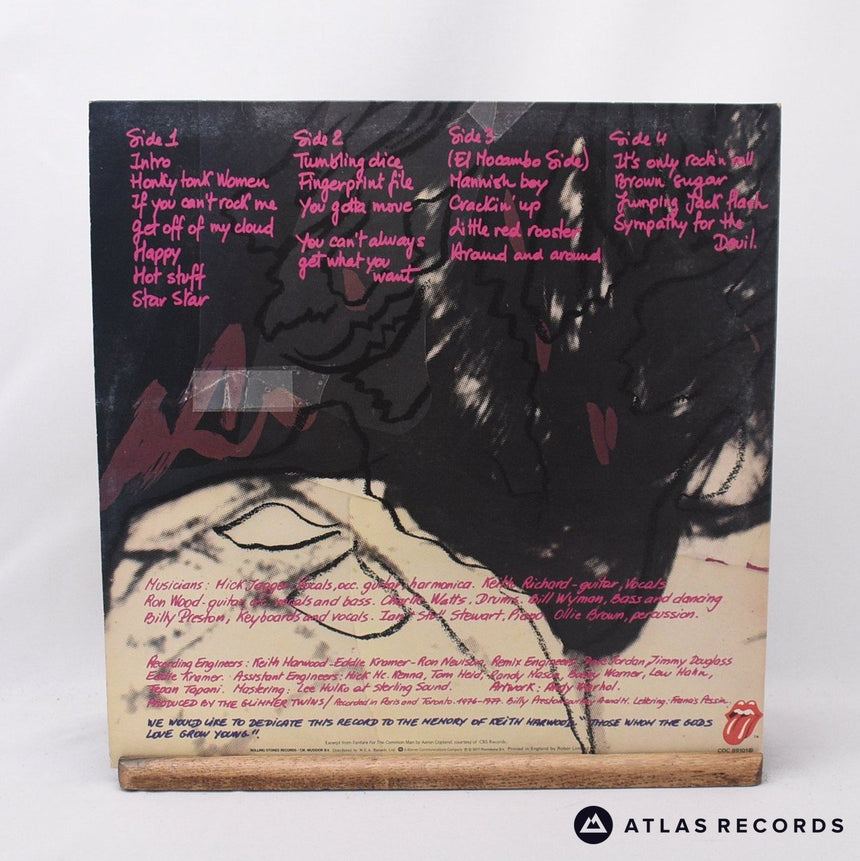 Side 1
Intro
Honky tonk Women
If you can't rock me
get off of my cloud
Happy
Hot stuff
Star Star
Side 2
Tumbling dice
Fingerprint file
You gotta move
You can't always
get what you
want
Side 3
(El Mocambo Side)
Mannish boy
Crackin' up
Little red rooster
Around and around
Side 4
It's only rock'n roll
Brown sugar
Jumping Jack flash
Sympathy for the
Devil.
Musicians: Mick Jagger - Vocals, acc. guitar, harmonica. Keith Richard - guitar, Vocals
Ron Wood - guitar, vocals and bass. Charlie Watts. Drums. Bill Wyman, Bass and dancing
Billy Preston, Keyboards and vocals. Ian Stewart, Piano Ollie Brown, percussion.
Recording Engineers: Keith Harwood - Eddie Kramer - Ron Nevison. Remix Engineers: Dave Jordan, Jimmy Douglass
Eddie Kramer. Assistant Engineers: Mick Mc. Kenna, Tom Heid, Randy Bobby Warner, Lew Hahn,
Tapani. Mastering: Lee Hulko at sterling Sound. Artwork: Andy Warhol.
PRODUCED BY THE GLIMMER TWINS / Recorded in Paris and Toronto. 1976-1977. Billy Preston A and M. Lettering: Francis Pessin.
WE WOULD LIKE TO DEDICATE THIS RECORD TO THE MEMORY OF KEITH HARWOOD "THOSE WHOM THE GODS
LOVE GROW YOUNG".
Excerpt from Fanfare For The Common Man by Aaron Copland, courtesy of CBS Records.
ROLLING STONES RECORDS Distributed by Printed in England by
COC 89101
TM
ATLAS RECORDS